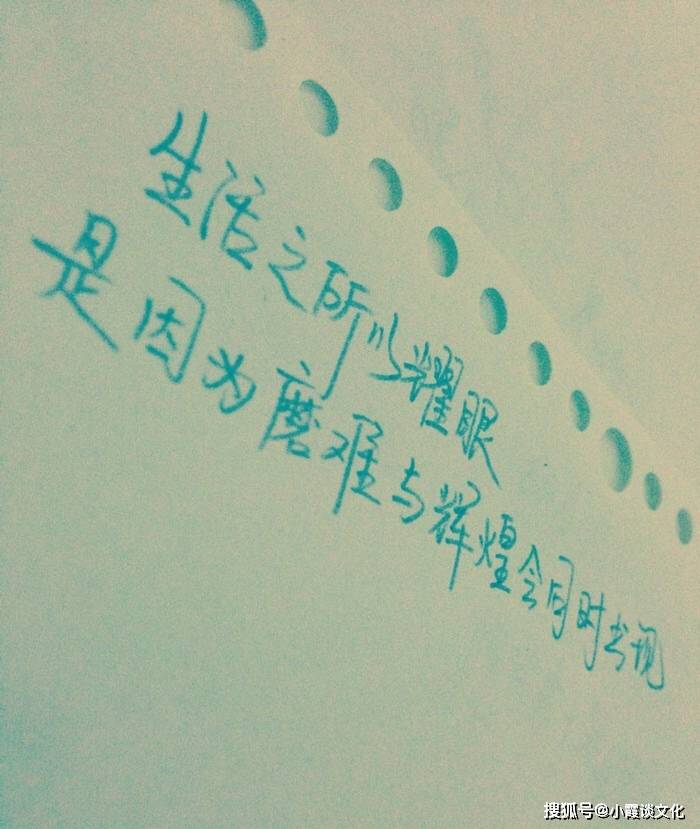 生活之所以耀眼
是因为磨难与辉煌会同时出现
搜狐号@小霞谈文化